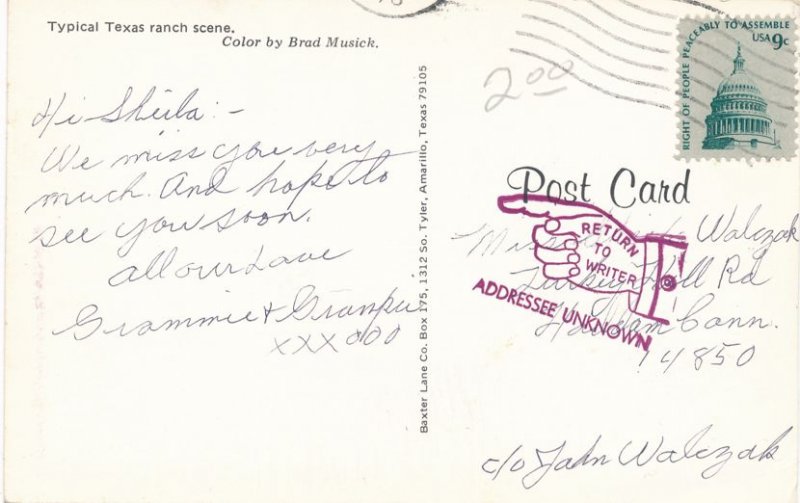 Typical Texas ranch scene.
Color by Brad Musick.
Hi Sheila:-
We miss you very
much. And hope to
see you soon.
all our Love
Grammie & Grampie
xxx ooo
Baxter Lane Co. Box 175, 1312 So. Tyler, Amarillo, Texas 79105
2.00
RIGHT OF PEOPLE PEACEABLY TO ASSEMBLE
USA 9c
Post Card
RETURN
TO
WRITER
ADDRESSEE UNKNOWN
Miss Walczak
Turkey Hill Rd
Haddam Conn.
14850
c/o John Walczak